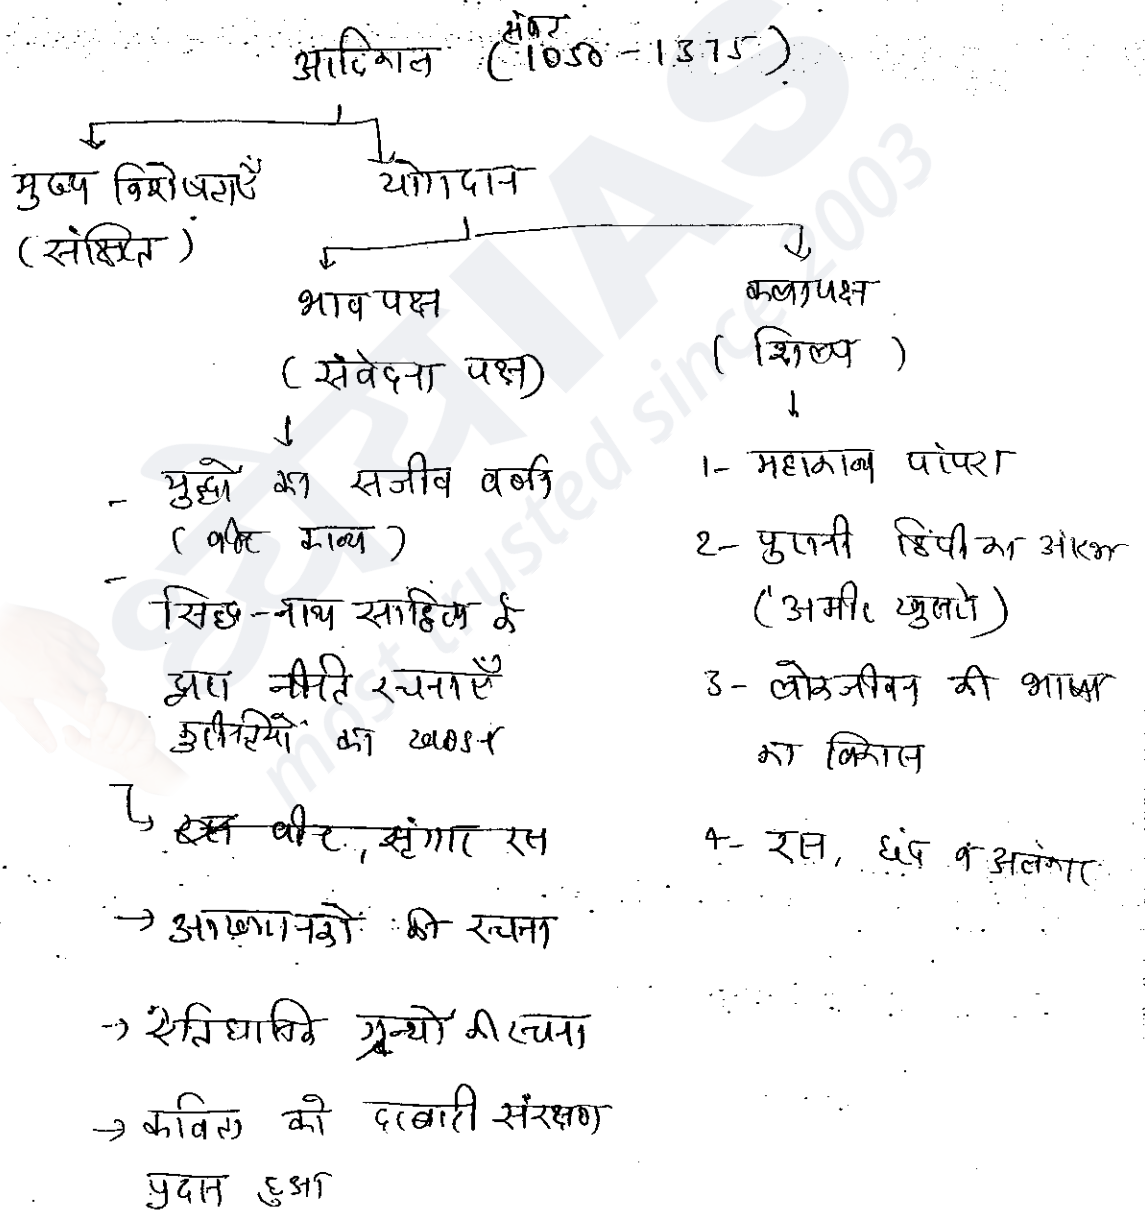 संवत
आदिकाल (1050-1375)
मुख्य विशेषताएँ
(संक्षिप्त)
योगदान
भाव पक्ष
(संवेदना पक्ष)
- युद्धों का सजीव वर्णन
(वीर काव्य)
- सिद्ध-नाथ साहित्य के
द्वारा नीति रचनाएँ
कुरीतियों का खण्डन
वीर, श्रृंगार रस
→ आख्यानकों की रचना
→ ऐतिहासिक ग्रन्थों की रचना
→ कविता को दरबारी संरक्षण
प्रदान हुआ
कलापक्ष
(शिल्प)
1- महाकाव्य परंपरा
2- पुरानी हिंदी का आरंभ
(अमीर खुसरो)
3- लोकजीवन की भाषा
का विकास
4- रस, छंद व अलंकार
ध्येयIAS
most trusted since 2003